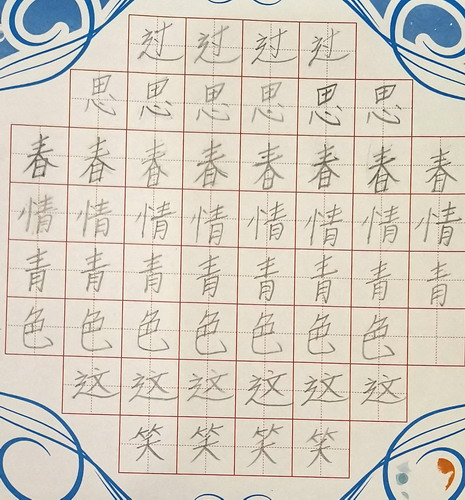 过过过过
思思思思思思
春春春春春春春春
情情情情情情情情
青青青青青青青青
色色色色色色色
这这这这这这
笑笑笑笑